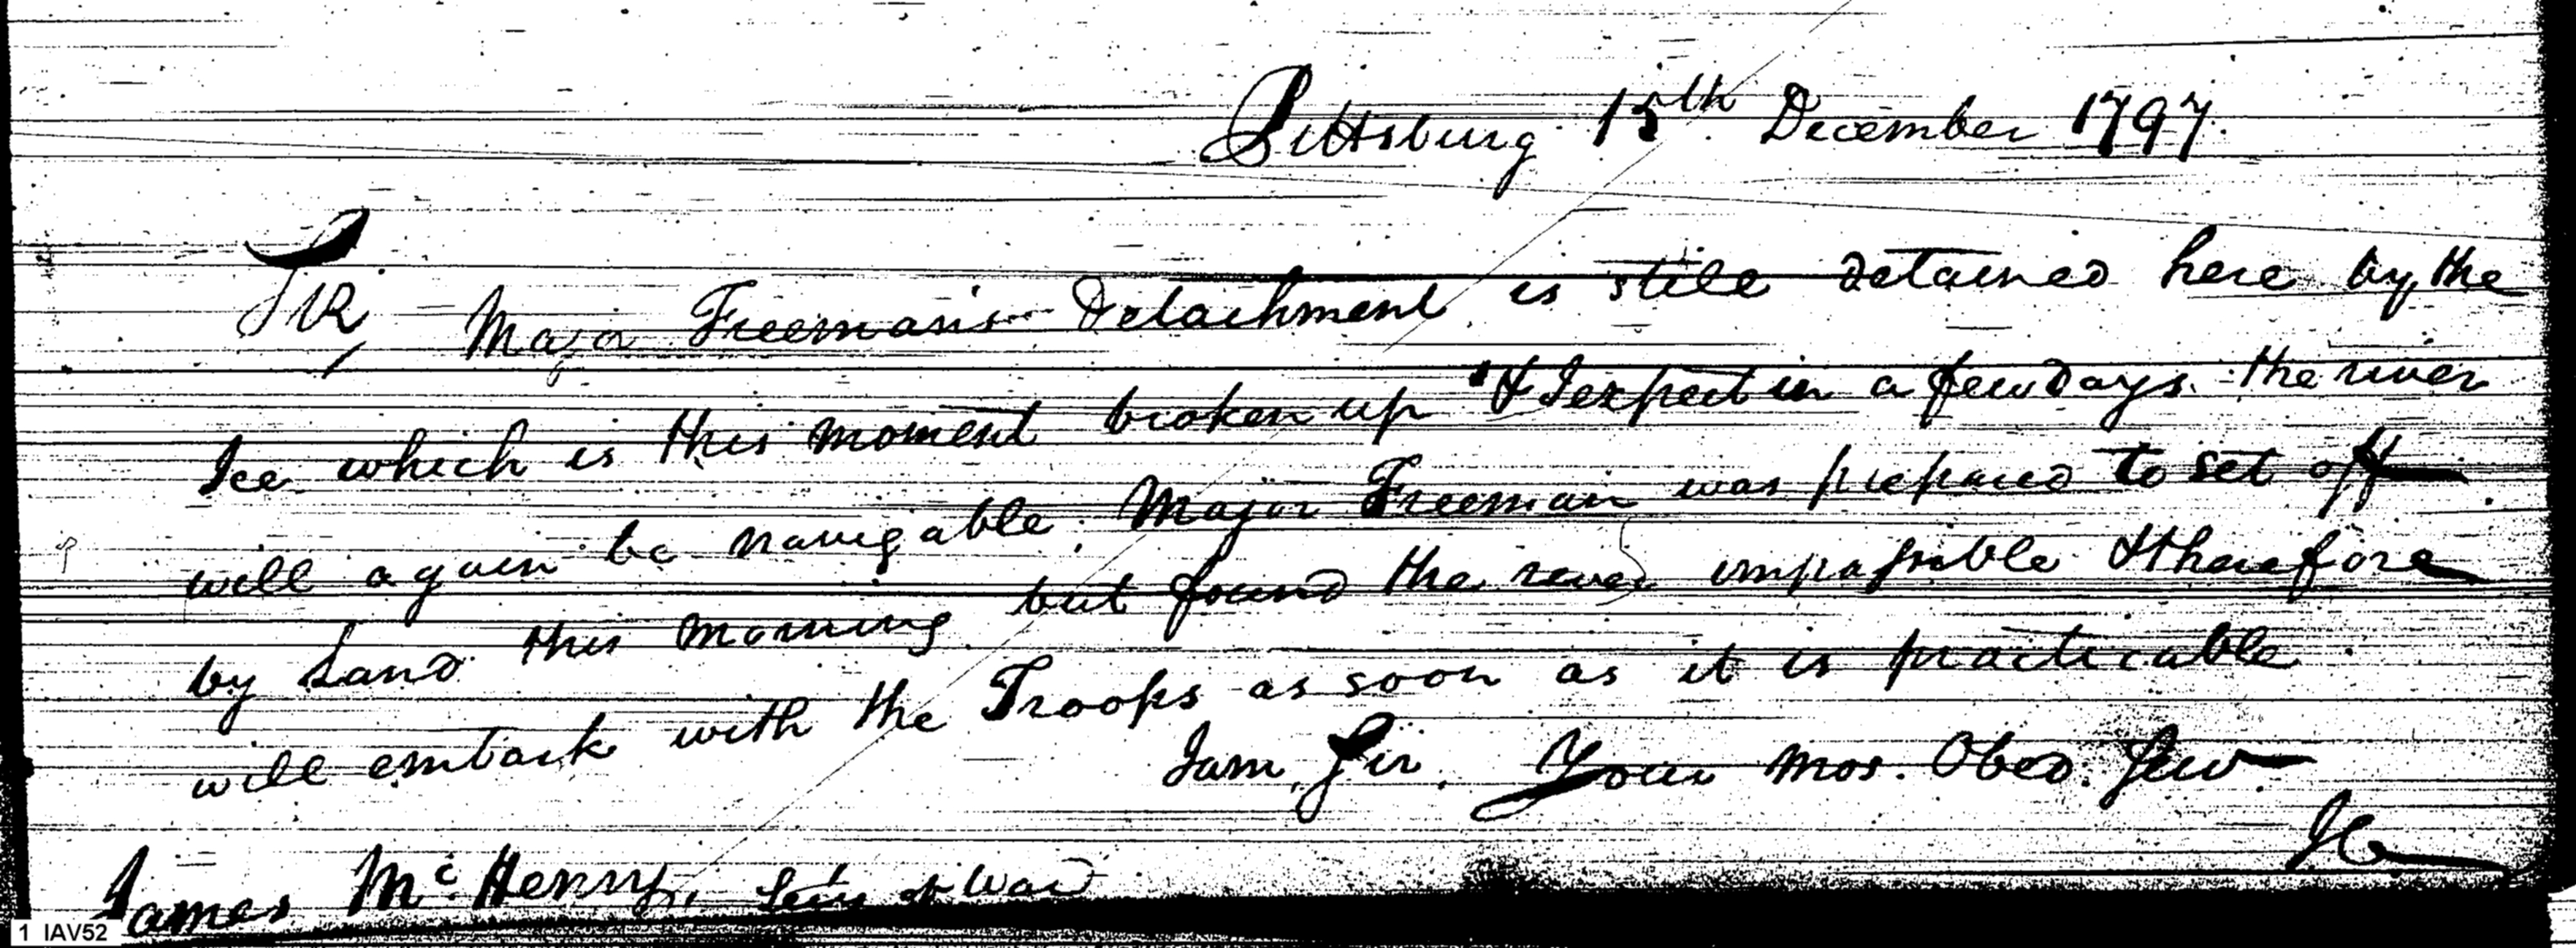 Pittsburg 15th December 1797.
Sir Major Freeman's Detachment is still detained here by the
Ice which is this moment broken up & I expect in a few days the river
will again be navigable. Major Freeman was prepared to set off
by Land this morning but found the river impassible & therefore
will embark with the Troops as soon as it is practicable
I am, Sir, Your Mos. Obed. Serv
James McHenry, Secy of War
1 IAV52